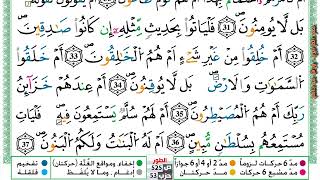 بَل لَّا يُؤْمِنُونَ ۝31 فَلْيَأْتُوا۟ بِحَدِيثٍ مِّثْلِهِۦٓ إِن كَانُوا۟ صَٰدِقِينَ
۝32 أَمْ خُلِقُوا۟ مِنْ غَيْرِ شَىْءٍ أَمْ هُمُ ٱلْخَٰلِقُونَ ۝33 أَمْ خَلَقُوا۟
ٱلسَّمَٰوَٰتِ وَٱلْأَرْضَ بَل لَّا يُوقِنُونَ ۝34 أَمْ عِندَهُمْ خَزَآئِنُ
رَبِّكَ أَمْ هُمُ ٱلْمُصَۣيْطِرُونَ ۝35 أَمْ لَهُمْ سُلَّمٌ يَسْتَمِعُونَ فِيهِ فَلْيَأْتِ
مُسْتَمِعُهُم بِسُلْطَٰنٍ مُّبِينٍ ۝36 أَمْ لَهُ ٱلْبَنَٰتُ وَلَكُمُ ٱلْبَنُونَ ۝37
الطور
525
53
مدّ 6 حركات لزوماً مدّ 2 أو 4 أو 6 جوازاً إخفاء، ومواقع الغُنَّة (حركتان) تفخيم
مدّ مشبع 6 حركات مدّ حركتان إدغام، وما لا يُلفَظ قلقلة